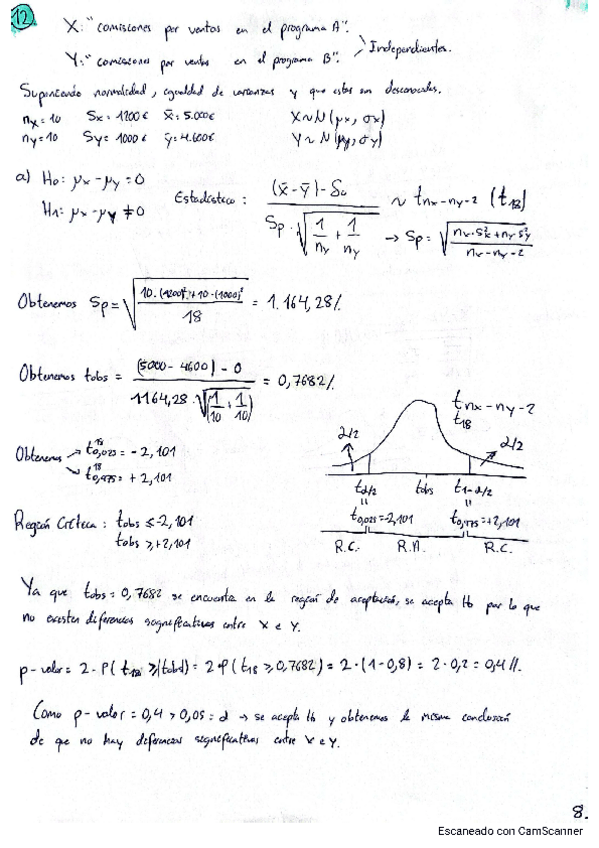 12.
X: "comisiones por ventas en el programa A".
Y: "comisiones por ventas en el programa B".
Independientes.
Suponiendo normalidad, igualdad de varianzas y que estas son desconocidas.
nx = 10 Sx = 1200 € x̄ = 5.000 € X ~ N(μx, σx)
ny = 10 Sy = 1000 € ȳ = 4.600 € Y ~ N(μy, σy)
a) H0: μx - μy = 0
H1: μx - μy ≠ 0
Estadístico: (x̄ - ȳ) - δ0 / Sp · √(1/ny + 1/ny) ~ t nx-ny-2 (t18)
→ Sp = √(nx·S²x + ny·S²y / nx-ny-2)
Obtenemos Sp = √(10·(1200)² + 10·(1000)² / 18) = 1.164,28 //.
Obtenemos tobs = (5000 - 4600) - 0 / 1164,28 · √(1/10 + 1/10) = 0,7682 //.
t nx-ny-2
t18
α/2 α/2
Obtenemos → t¹⁸0,025 = -2,101
↘ t¹⁸0,975 = +2,101
tα/2 tobs t1-α/2
t0,025 = -2,101 t0,975 = +2,101
R.C. R.A. R.C.
Región Crítica: tobs ≤ -2,101
tobs ≥ +2,101
Ya que tobs = 0,7682 se encuentra en la región de aceptación, se acepta H0 por lo que
no existen diferencias significativas entre X e Y.
p-valor = 2·P(t18 ≥ |tobs|) = 2·P(t18 ≥ 0,7682) = 2·(1-0,8) = 2·0,2 = 0,4 //.
Como p-valor = 0,4 > 0,05 = α → se acepta H0 y obtenemos la misma conclusión
de que no hay diferencias significativas entre X e Y.
8.
Escaneado con CamScanner